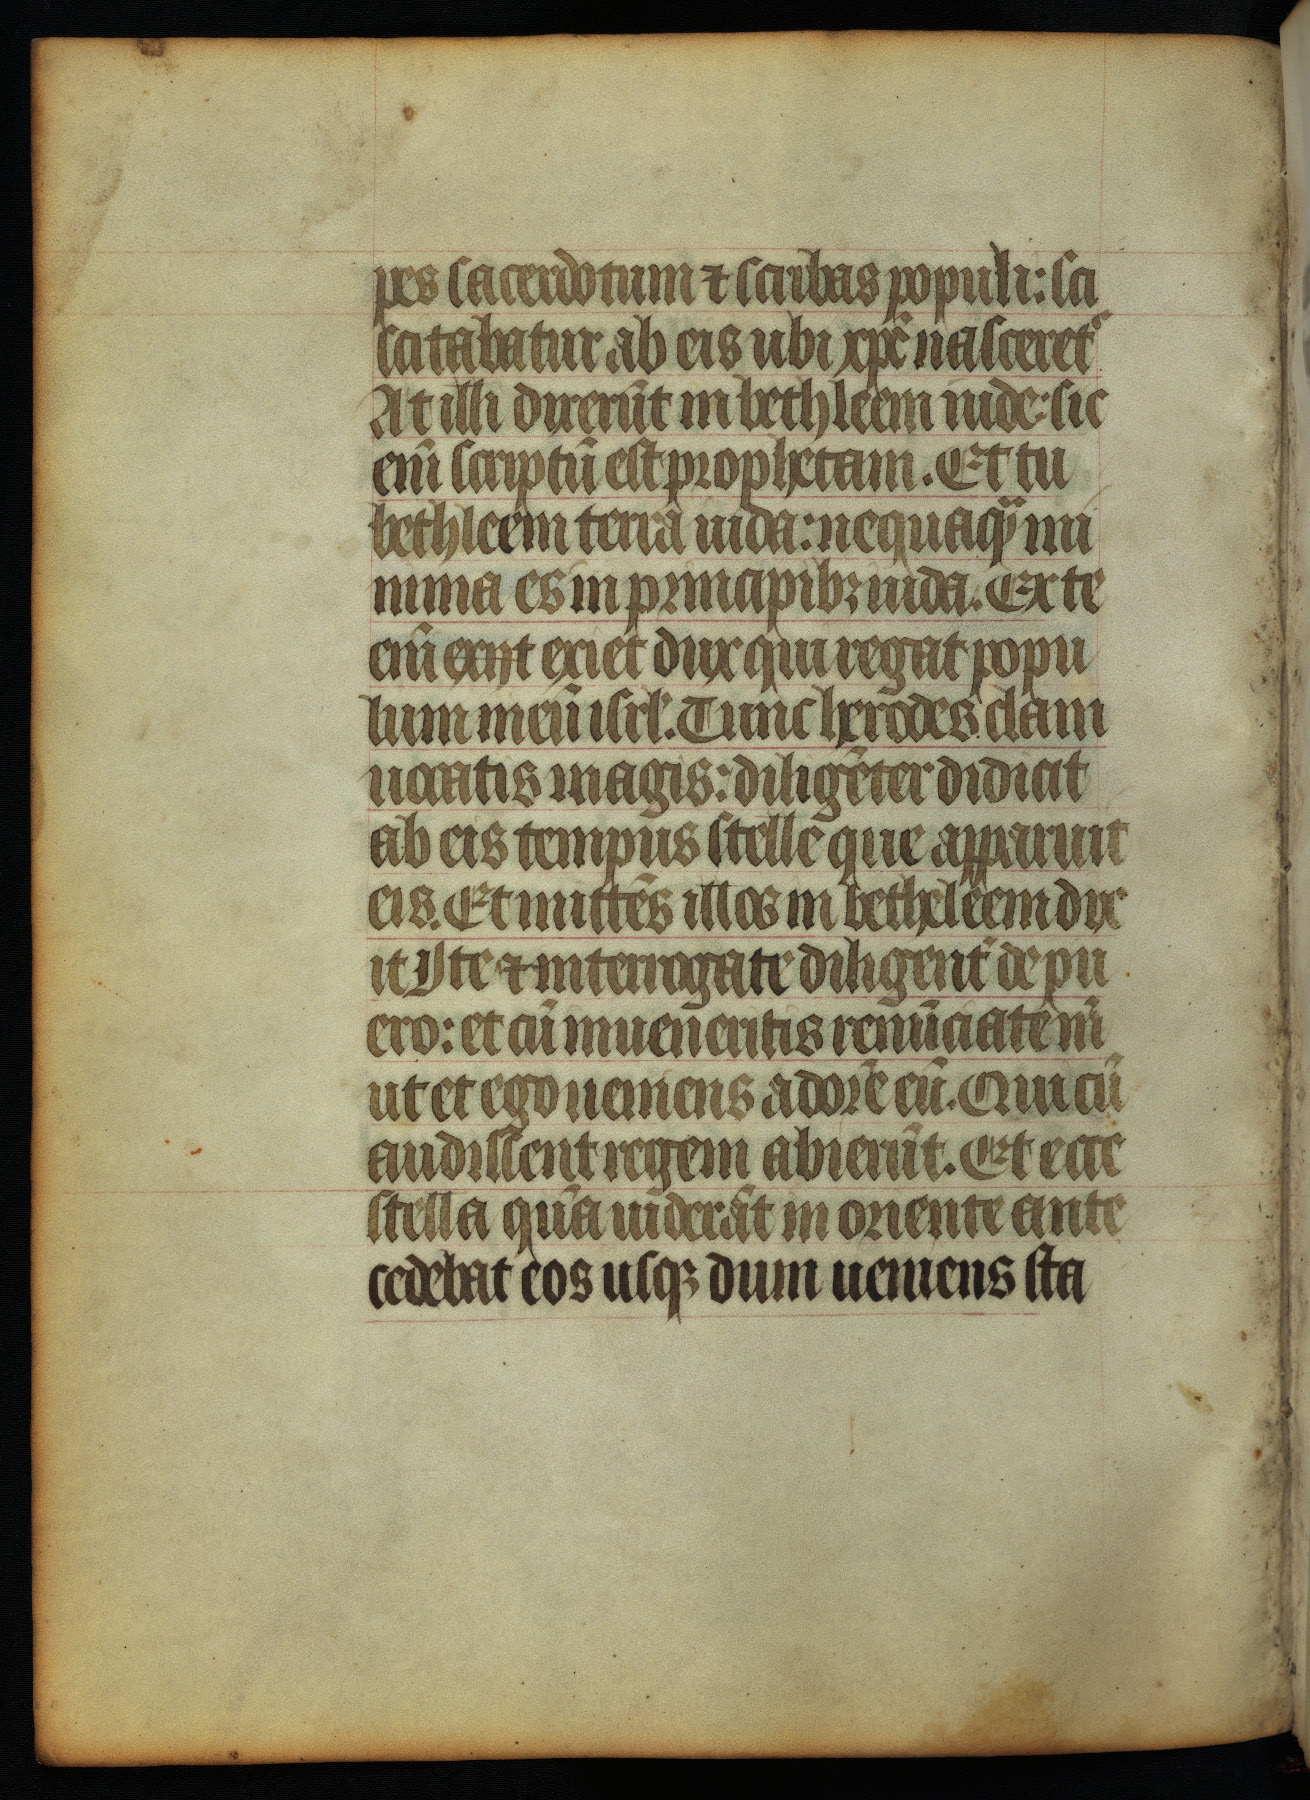 pes sacerdotum ⁊ scribas populi: sci
scitabatur ab eis ubi xp̄c nasceret᷑
At illi dixerūt in bethleem iude: sic
eni̅ scriptū est prophetam. Et tu
bethleem terra iuda: nequaqᷓ mi
nima es in principibꝫ iuda. Ex te
eni̅ exiit exiet dux qui regat popu
lum meū isrl̅. Tunc herodes clam
uocatis magis: diligēter didicit
ab eis tempus stelle que apparuit
eis. Et mittēs illos in betheleem dix
it Ite ⁊ interrogate diligent̉ de pu
ero: et cū inueneritis renūciate m̄
ut et ego ueniens adorē eū. Qui cū
audissent regem abierūt. Et ecce
stella quā uiderāt in oriente ante
cedebat eos usqꝫ dum ueniens sta